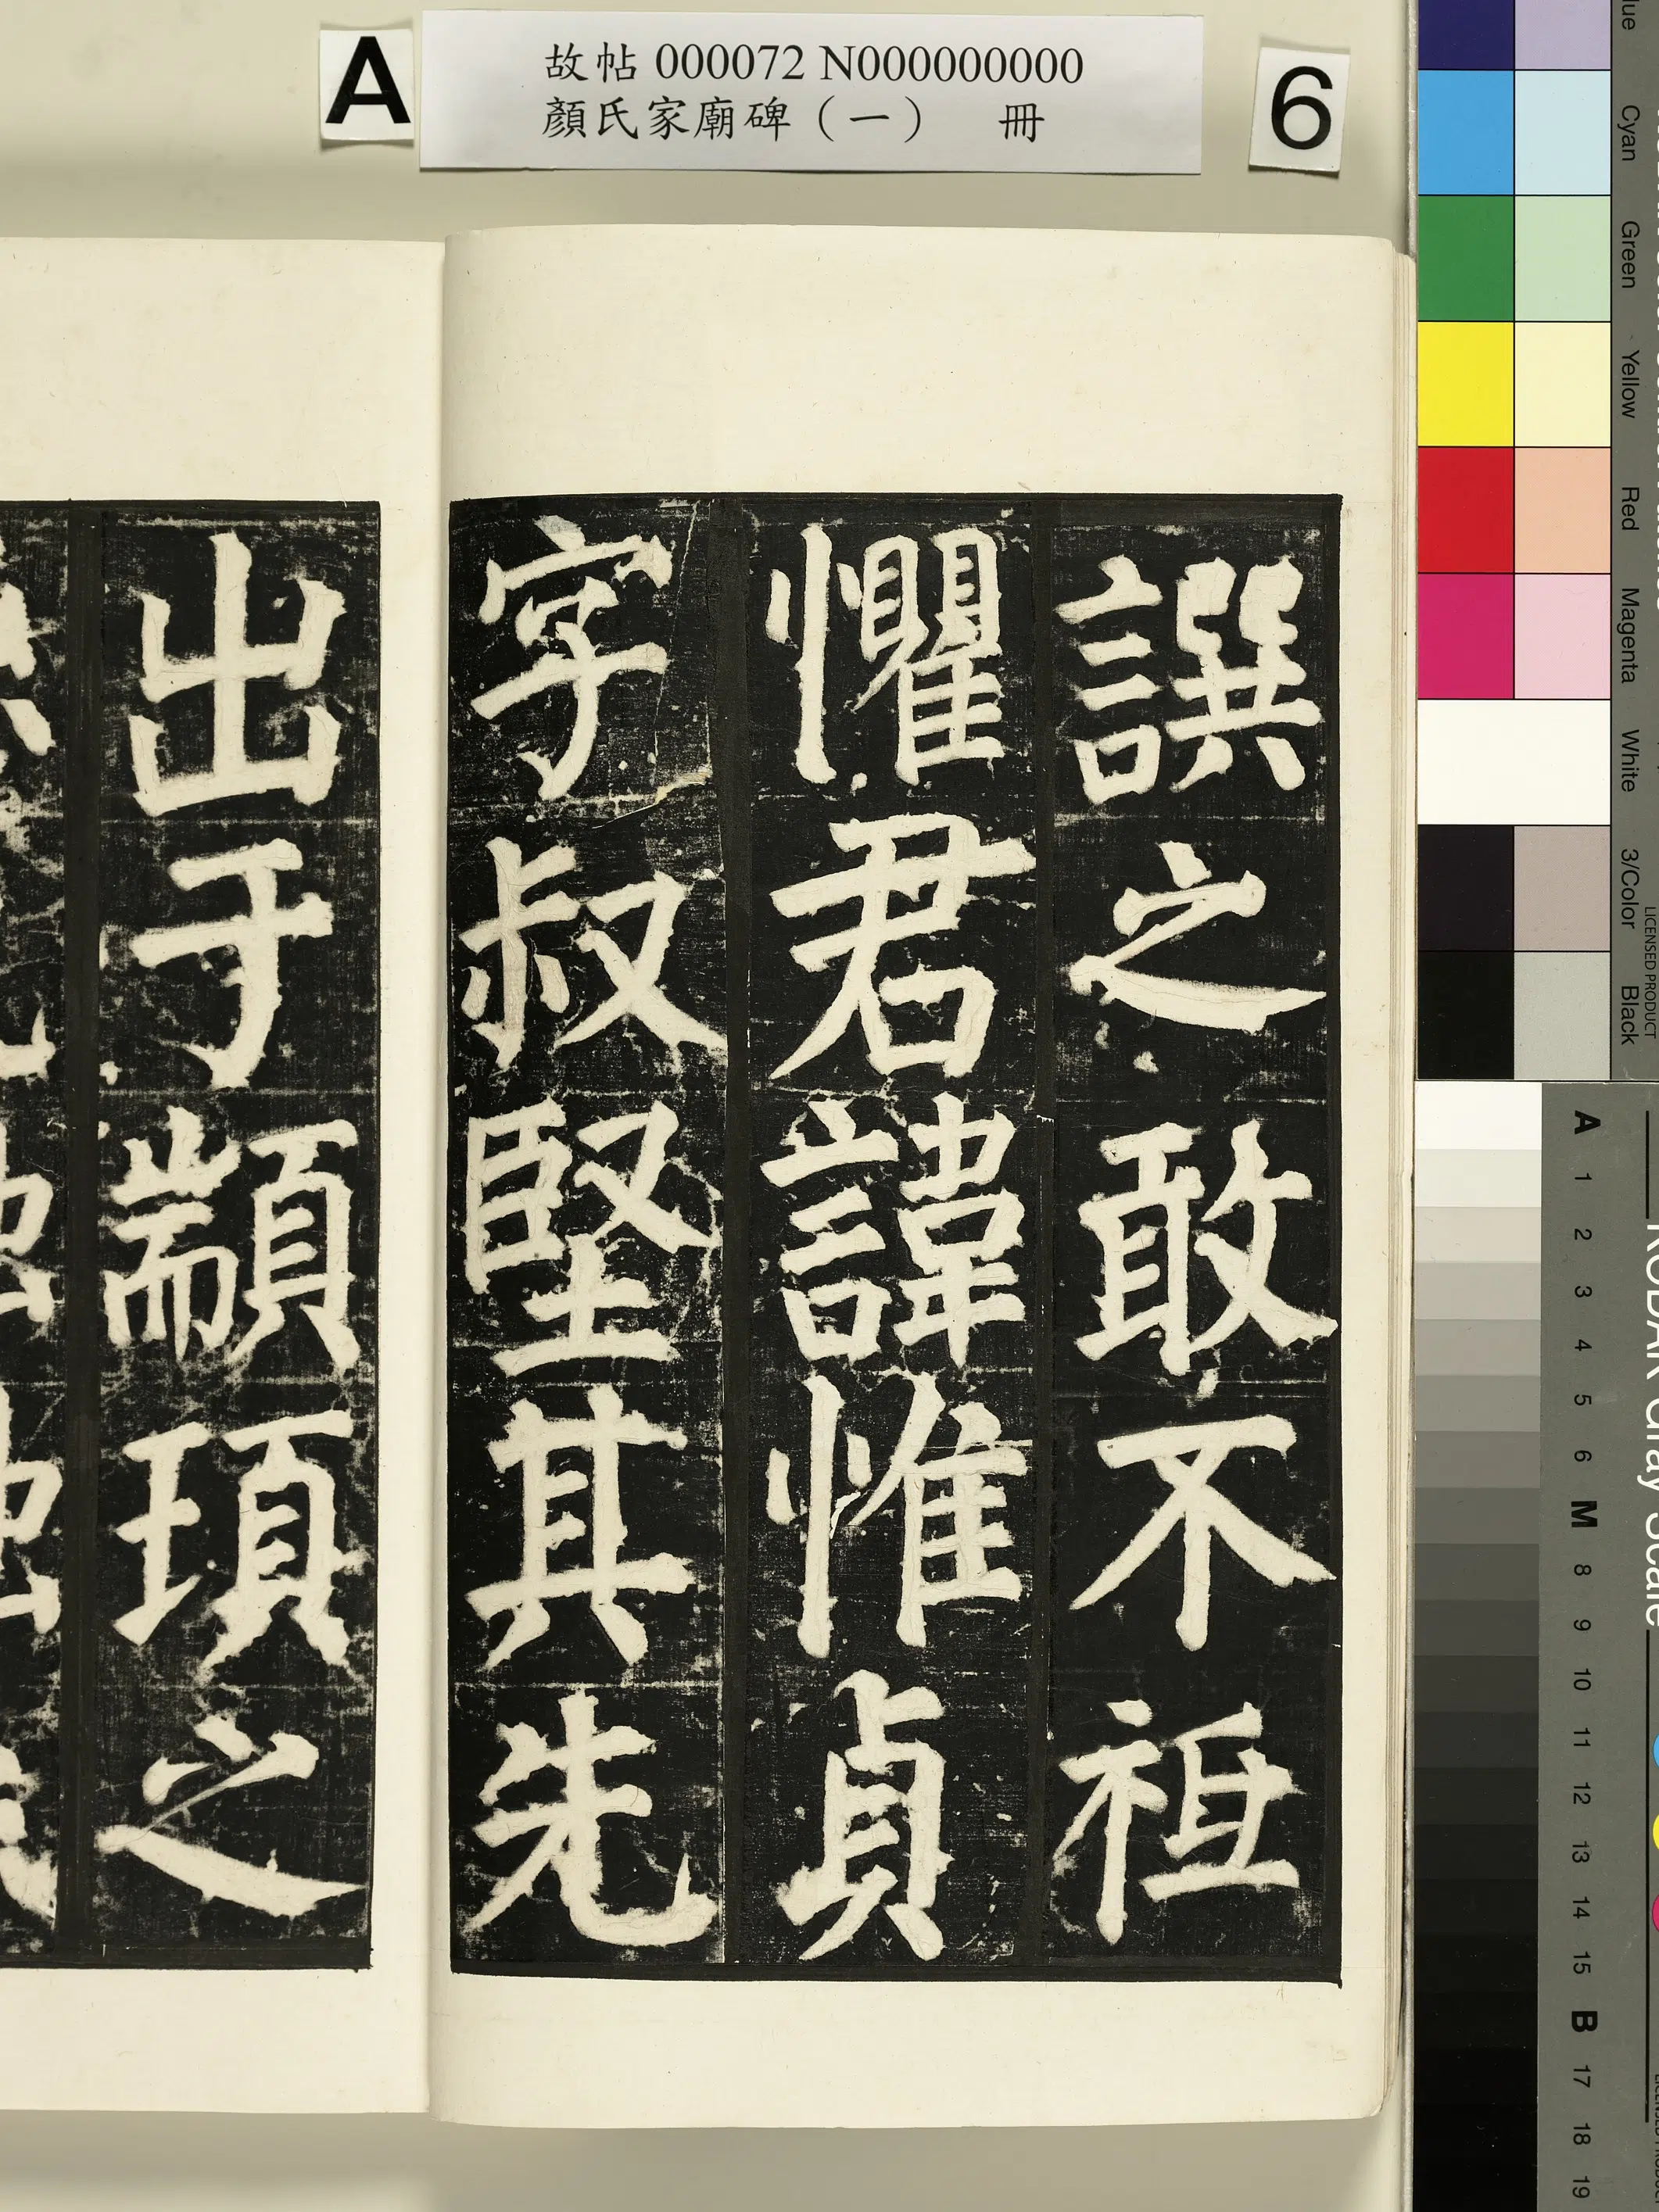 A
故帖 000072 N000000000
顏氏家廟碑（一）　冊
6
譔之敢不祗
懼君諱惟貞
字叔堅其先
出于顓頊之
Cyan
Green
Yellow
Red
Magenta
White
3/Color
Black
LICENSED PRODUCT
KODAK Gray Scale
A 1 2 3 4 5 6 M 8 9 10 11 12 13 14 15 B 17 18 19